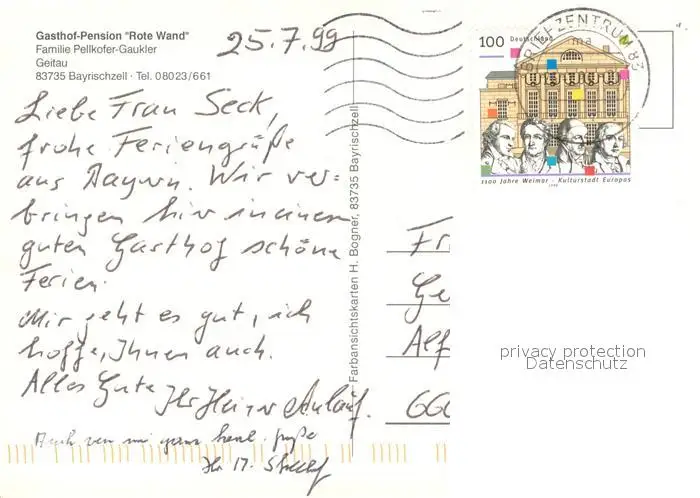 Gasthof-Pension "Rote Wand"
Familie Pellkofer-Gaukler
Geitau
83735 Bayrischzell · Tel. 08023/661
25.7.99
Liebe Frau Seck,
frohe Feriengrüße
aus Bayern. Wir ver-
bringen hier in einem
guten Gasthof schöne
Ferien.
Mir geht es gut, ich
hoffe, Ihnen auch.
Alles Gute
Ihr Heiner
Auch von mir ganz herzl. Grüße
Ihr M.
Farbansichtskarten H. Bogner, 83735 Bayrischzell
BRIEFZENTRUM 83
ma
100 Deutschland
1100 Jahre Weimar - Kulturstadt Europas
1999
Fr
Ge
Alf
666
privacy protection
Datenschutz